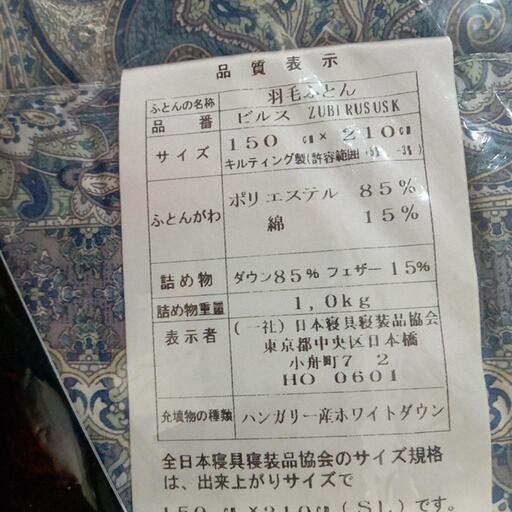 品質表示
ふとんの名称 羽毛ふとん
品番 ビルス ZUBIRUSUSK
サイズ 150 cm × 210 cm
キルティング製(許容範囲 +5% -3%)
ふとんがわ ポリエステル 85%
綿 15%
詰め物 ダウン85% フェザー15%
詰め物重量 1,0kg
表示者 (一社)日本寝具寝装品協会
東京都中央区日本橋
小舟町7 2
HO 0601
充填物の種類 ハンガリー産ホワイトダウン
全日本寝具寝装品協会のサイズ規格
は、出来上がりサイズで
150 cm ×210cm(SL)です。